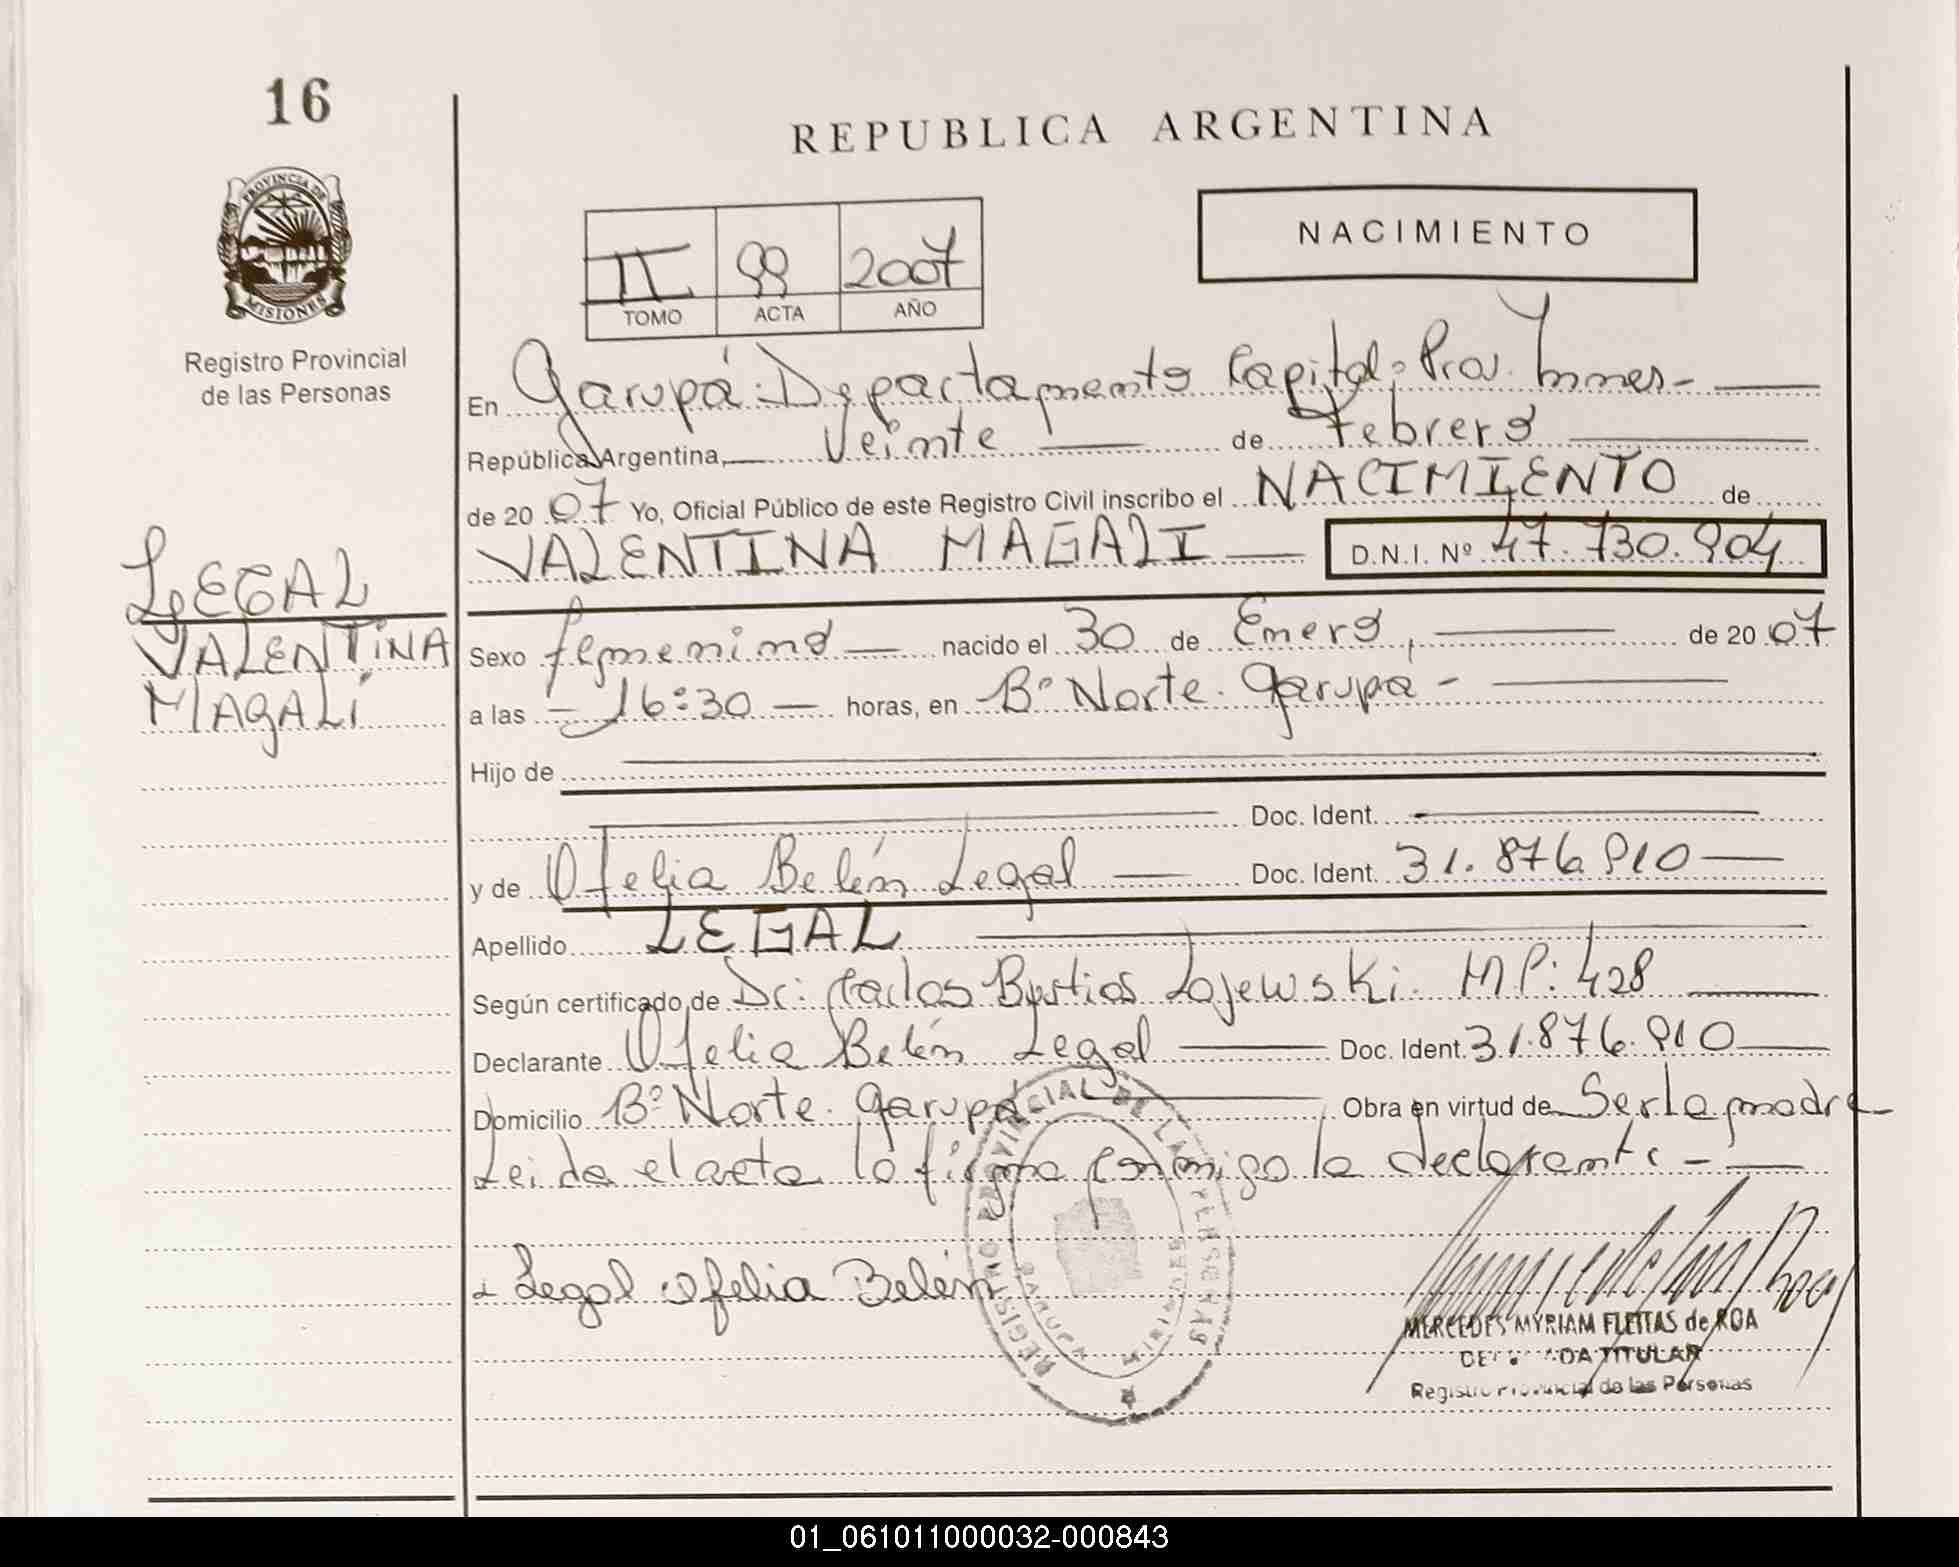 16
REPUBLICA ARGENTINA
PROVINCIA DE
MISIONES
Registro Provincial
de las Personas
NACIMIENTO
II 99 2007
TOMO ACTA AÑO
En Garupá. Departamento Capital. Prov.
República Argentina, veinte de Febrero
de 20 07 Yo, Oficial Público de este Registro Civil inscribo el NACIMIENTO de
VALENTINA MAGALI D.N.I. Nº 47.730.904
LEGAL
VALENTINA
MAGALÍ
Sexo femenino nacido el 30 de Enero, de 20 07
a las - 16:30 - horas, en Bº Norte. Garupá -
Hijo de
Doc. Ident.
y de Ofelia Belén Legal Doc. Ident. 31.876.910
Apellido LEGAL
Según certificado de Dr: Carlos Bustios Lojewski. MP: 428
Declarante Ofelia Belén Legal Doc. Ident. 31.876.910
Domicilio Bº Norte. Garupá Obra en virtud de Ser la madre
Leida el acta la firma conmigo la declarante -
Legal Ofelia Belén
REGISTRO PROVINCIAL DE LAS PERSONAS
GARUPA
MISIONES
MERCEDES MYRIAM FLEITAS de ROA
TITULAR
Registro Provincial de las Personas
01_061011000032-000843